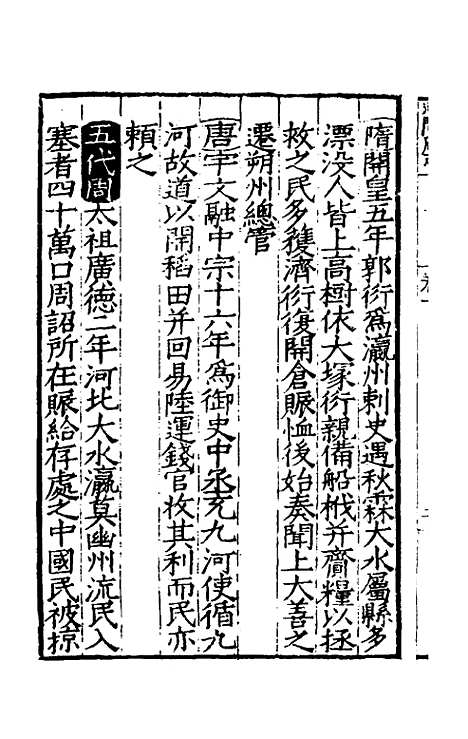 隋開皇五年郭衍爲瀛州刺史遇秋霖大水屬縣多
漂没人皆上高樹依大塚衍親備船栰并齎糧以拯
救之民多獲濟衍復開倉賑恤後始奏聞上大善之
遷朔州總管
唐宇文融中宗十六年爲御史中丞充九河使循九
河故道以開稻田并回易陸運錢官收其利而民亦
賴之
五代周太祖廣德二年河北大水瀛莫幽州流民入
塞者四十萬口周詔所在賑給存處之中國民被掠